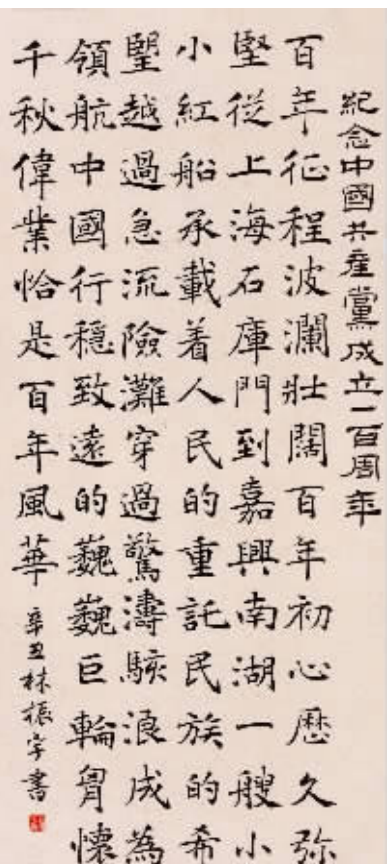 紀念中國共產黨成立一百周年
百年征程波瀾壯闊百年初心歷久弥
堅從上海石庫門到嘉興南湖一艘小
小紅船承載着人民的重託民族的希
朢越過急流險灘穿過驚濤駭浪成為
領航中國行穩致遠的巍巍巨輪胷懷
千秋偉業恰是百年風華
辛丑林振宇書